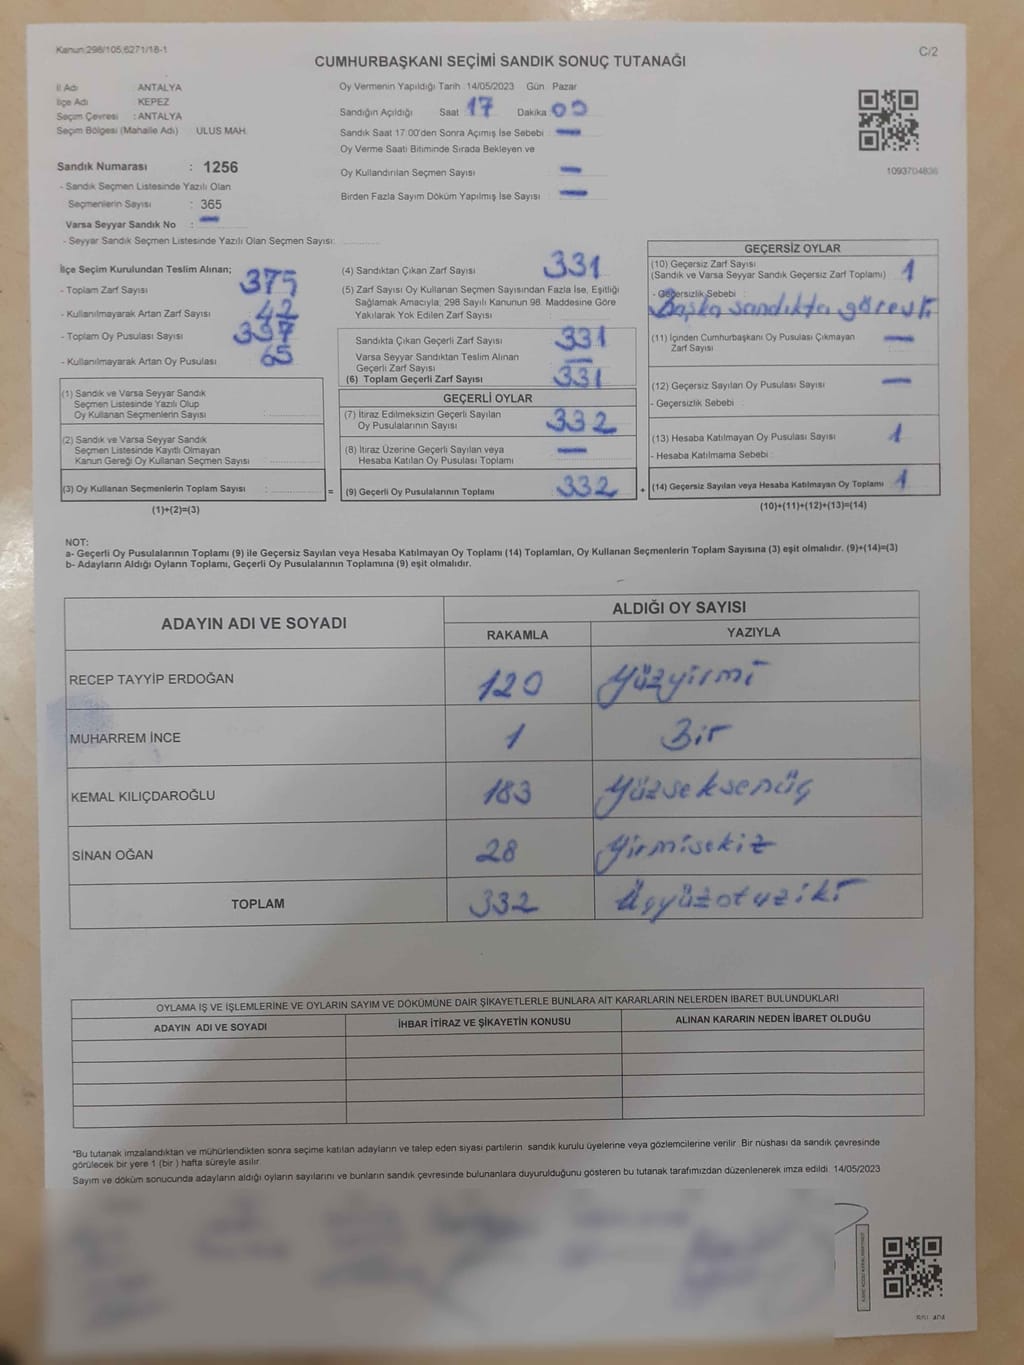 Kanun:298/105;6271/18-1
C/2
CUMHURBAŞKANI SEÇİMİ SANDIK SONUÇ TUTANAĞI
İl Adı : ANTALYA
İlçe Adı : KEPEZ
Seçim Çevresi : ANTALYA
Seçim Bölgesi (Mahalle Adı) : ULUS MAH.
Sandık Numarası : 1256
- Sandık Seçmen Listesinde Yazılı Olan
Seçmenlerin Sayısı : 365
Varsa Seyyar Sandık No : —
- Seyyar Sandık Seçmen Listesinde Yazılı Olan Seçmen Sayısı:
Oy Vermenin Yapıldığı Tarih :14/05/2023 Gün: Pazar
Sandığın Açıldığı Saat 17 Dakika 00
Sandık Saat 17:00'den Sonra Açımış İse Sebebi : —
Oy Verme Saati Bitiminde Sırada Bekleyen ve
Oy Kullandırılan Seçmen Sayısı : —
Birden Fazla Sayım Döküm Yapılmış İse Sayısı : —
1093704836
İlçe Seçim Kurulundan Teslim Alınan;
- Toplam Zarf Sayısı : 375
- Kullanılmayarak Artan Zarf Sayısı : 42
- Toplam Oy Pusulası Sayısı : 397
- Kullanılmayarak Artan Oy Pusulası : 65
(1) Sandık ve Varsa Seyyar Sandık
Seçmen Listesinde Yazılı Olup
Oy Kullanan Seçmenlerin Sayısı :
(2) Sandık ve Varsa Seyyar Sandık
Seçmen Listesinde Kayıtlı Olmayan
Kanun Gereği Oy Kullanan Seçmen Sayısı :
(3) Oy Kullanan Seçmenlerin Toplam Sayısı :
(1)+(2)=(3)
(4) Sandıktan Çıkan Zarf Sayısı : 331
(5) Zarf Sayısı Oy Kullanan Seçmen Sayısından Fazla İse, Eşitliği
Sağlamak Amacıyla; 298 Sayılı Kanunun 98. Maddesine Göre
Yakılarak Yok Edilen Zarf Sayısı :
Sandıkta Çıkan Geçerli Zarf Sayısı : 331
Varsa Seyyar Sandıktan Teslim Alınan
Geçerli Zarf Sayısı : —
(6) Toplam Geçerli Zarf Sayısı : 331
GEÇERLİ OYLAR
(7) İtiraz Edilmeksizin Geçerli Sayılan
Oy Pusulalarının Sayısı : 332
(8) İtiraz Üzerine Geçerli Sayılan veya
Hesaba Katılan Oy Pusulası Toplamı : —
= (9) Geçerli Oy Pusulalarının Toplamı : 332 +
GEÇERSİZ OYLAR
(10) Geçersiz Zarf Sayısı
(Sandık ve Varsa Seyyar Sandık Geçersiz Zarf Toplamı) : 1
- Geçersizlik Sebebi :
Başka sandıkta görevli
(11) İçinden Cumhurbaşkanı Oy Pusulası Çıkmayan
Zarf Sayısı : —
(12) Geçersiz Sayılan Oy Pusulası Sayısı : —
- Geçersizlik Sebebi :
(13) Hesaba Katılmayan Oy Pusulası Sayısı : 1
- Hesaba Katılmama Sebebi :
(14) Geçersiz Sayılan veya Hesaba Katılmayan Oy Toplamı : 1
(10)+(11)+(12)+(13)=(14)
NOT:
a- Geçerli Oy Pusulalarının Toplamı (9) ile Geçersiz Sayılan veya Hesaba Katılmayan Oy Toplamı (14) Toplamları, Oy Kullanan Seçmenlerin Toplam Sayısına (3) eşit olmalıdır. (9)+(14)=(3)
b- Adayların Aldığı Oyların Toplamı, Geçerli Oy Pusulalarının Toplamına (9) eşit olmalıdır.
ADAYIN ADI VE SOYADI
ALDIĞI OY SAYISI
RAKAMLA YAZIYLA
RECEP TAYYİP ERDOĞAN 120 Yüzyirmi
MUHARREM İNCE 1 Bir
KEMAL KILIÇDAROĞLU 183 Yüzseksenüç
SİNAN OĞAN 28 Yirmisekiz
TOPLAM 332 Üçyüzotuziki
OYLAMA İŞ VE İŞLEMLERİNE VE OYLARIN SAYIM VE DÖKÜMÜNE DAİR ŞİKAYETLERLE BUNLARA AİT KARARLARIN NELERDEN İBARET BULUNDUKLARI
ADAYIN ADI VE SOYADI İHBAR İTİRAZ VE ŞİKAYETİN KONUSU ALINAN KARARIN NEDEN İBARET OLDUĞU
*Bu tutanak imzalandıktan ve mühürlendikten sonra seçime katılan adayların ve talep eden siyasi partilerin sandık kurulu üyelerine veya gözlemcilerine verilir. Bir nüshası da sandık çevresinde
görülecek bir yere 1 (bir) hafta süreyle asılır.
Sayım ve döküm sonucunda adayların aldığı oyların sayılarını ve bunların sandık çevresinde bulunanlara duyurulduğunu gösteren bu tutanak tarafımızdan düzenlenerek imza edildi. 14/05/2023